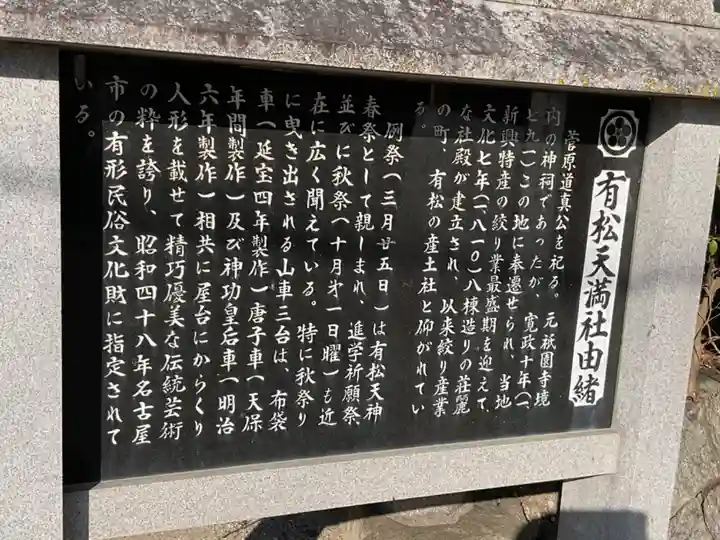 有松天満社由緒
菅原道真公を祀る。元祇園寺境
内の神祠であったが、寛政十年(一、
七九八)この地に奉遷せられ、当地
新興特産の絞り業最盛期を迎えて
文化七年(一、八一〇)八棟造りの荘麗
な社殿が建立され、以来絞り産業
の町、有松の産土社と仰がれてい
る。
例祭(三月廿五日)は有松天神
春祭として親しまれ、進学祈願祭
並びに秋祭(十月第一日曜)も近
在に広く聞えている。特に秋祭り
に曳き出される山車三台は、布袋
車(延宝四年製作)唐子車(天保
年間製作)及び神功皇后車(明治
六年製作)相共に屋台にからくり
人形を載せて精巧優美な伝統芸術
の粋を誇り、昭和四十八年名古屋
市の有形民俗文化財に指定されて
いる。